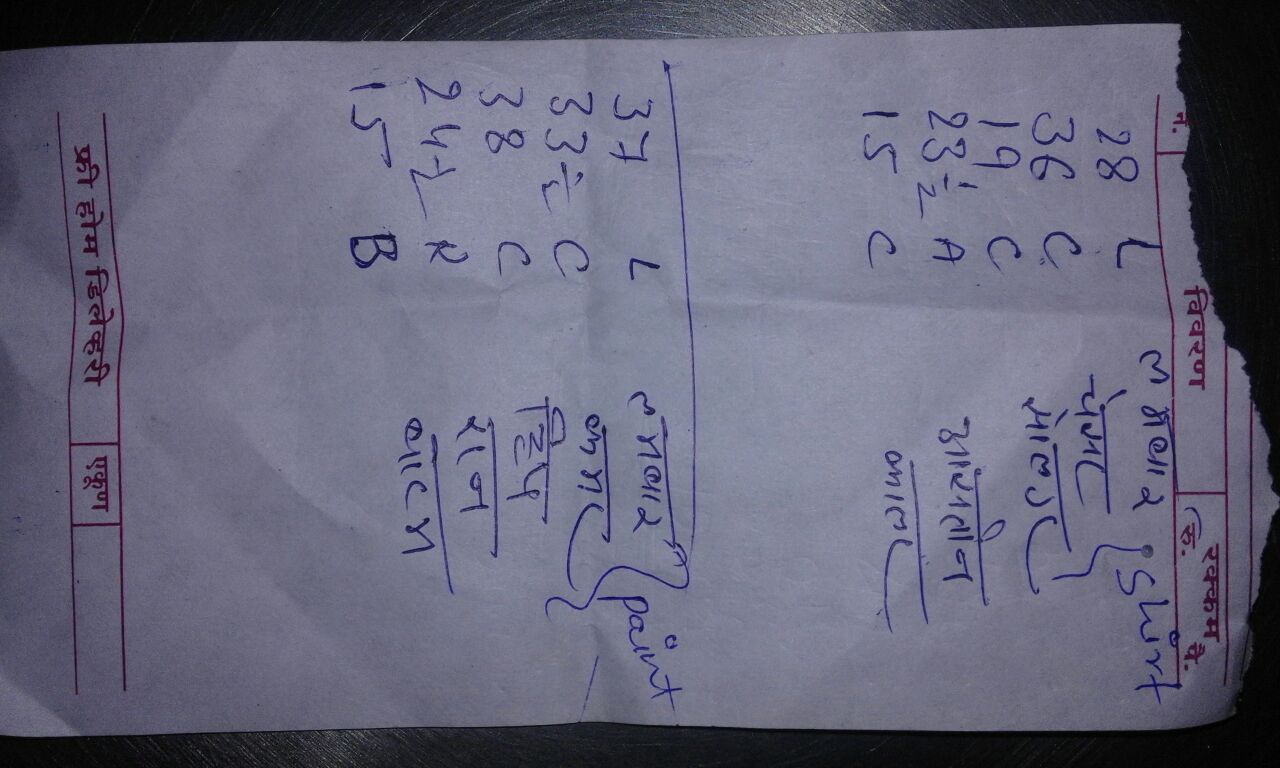 नं. विवरण रक्कम
रु. पै.
28 L लम्बाई shirt
36 C चेस्ट
19 C सोल्डर
23 1/2 A आस्तीन
15 C कालर
37 L लम्बाई paint
33 1/2 C कमर
38 C हिप
24 1/2 R रान
15 B बाटम
फ्री होम डिलेव्हरी एकूण